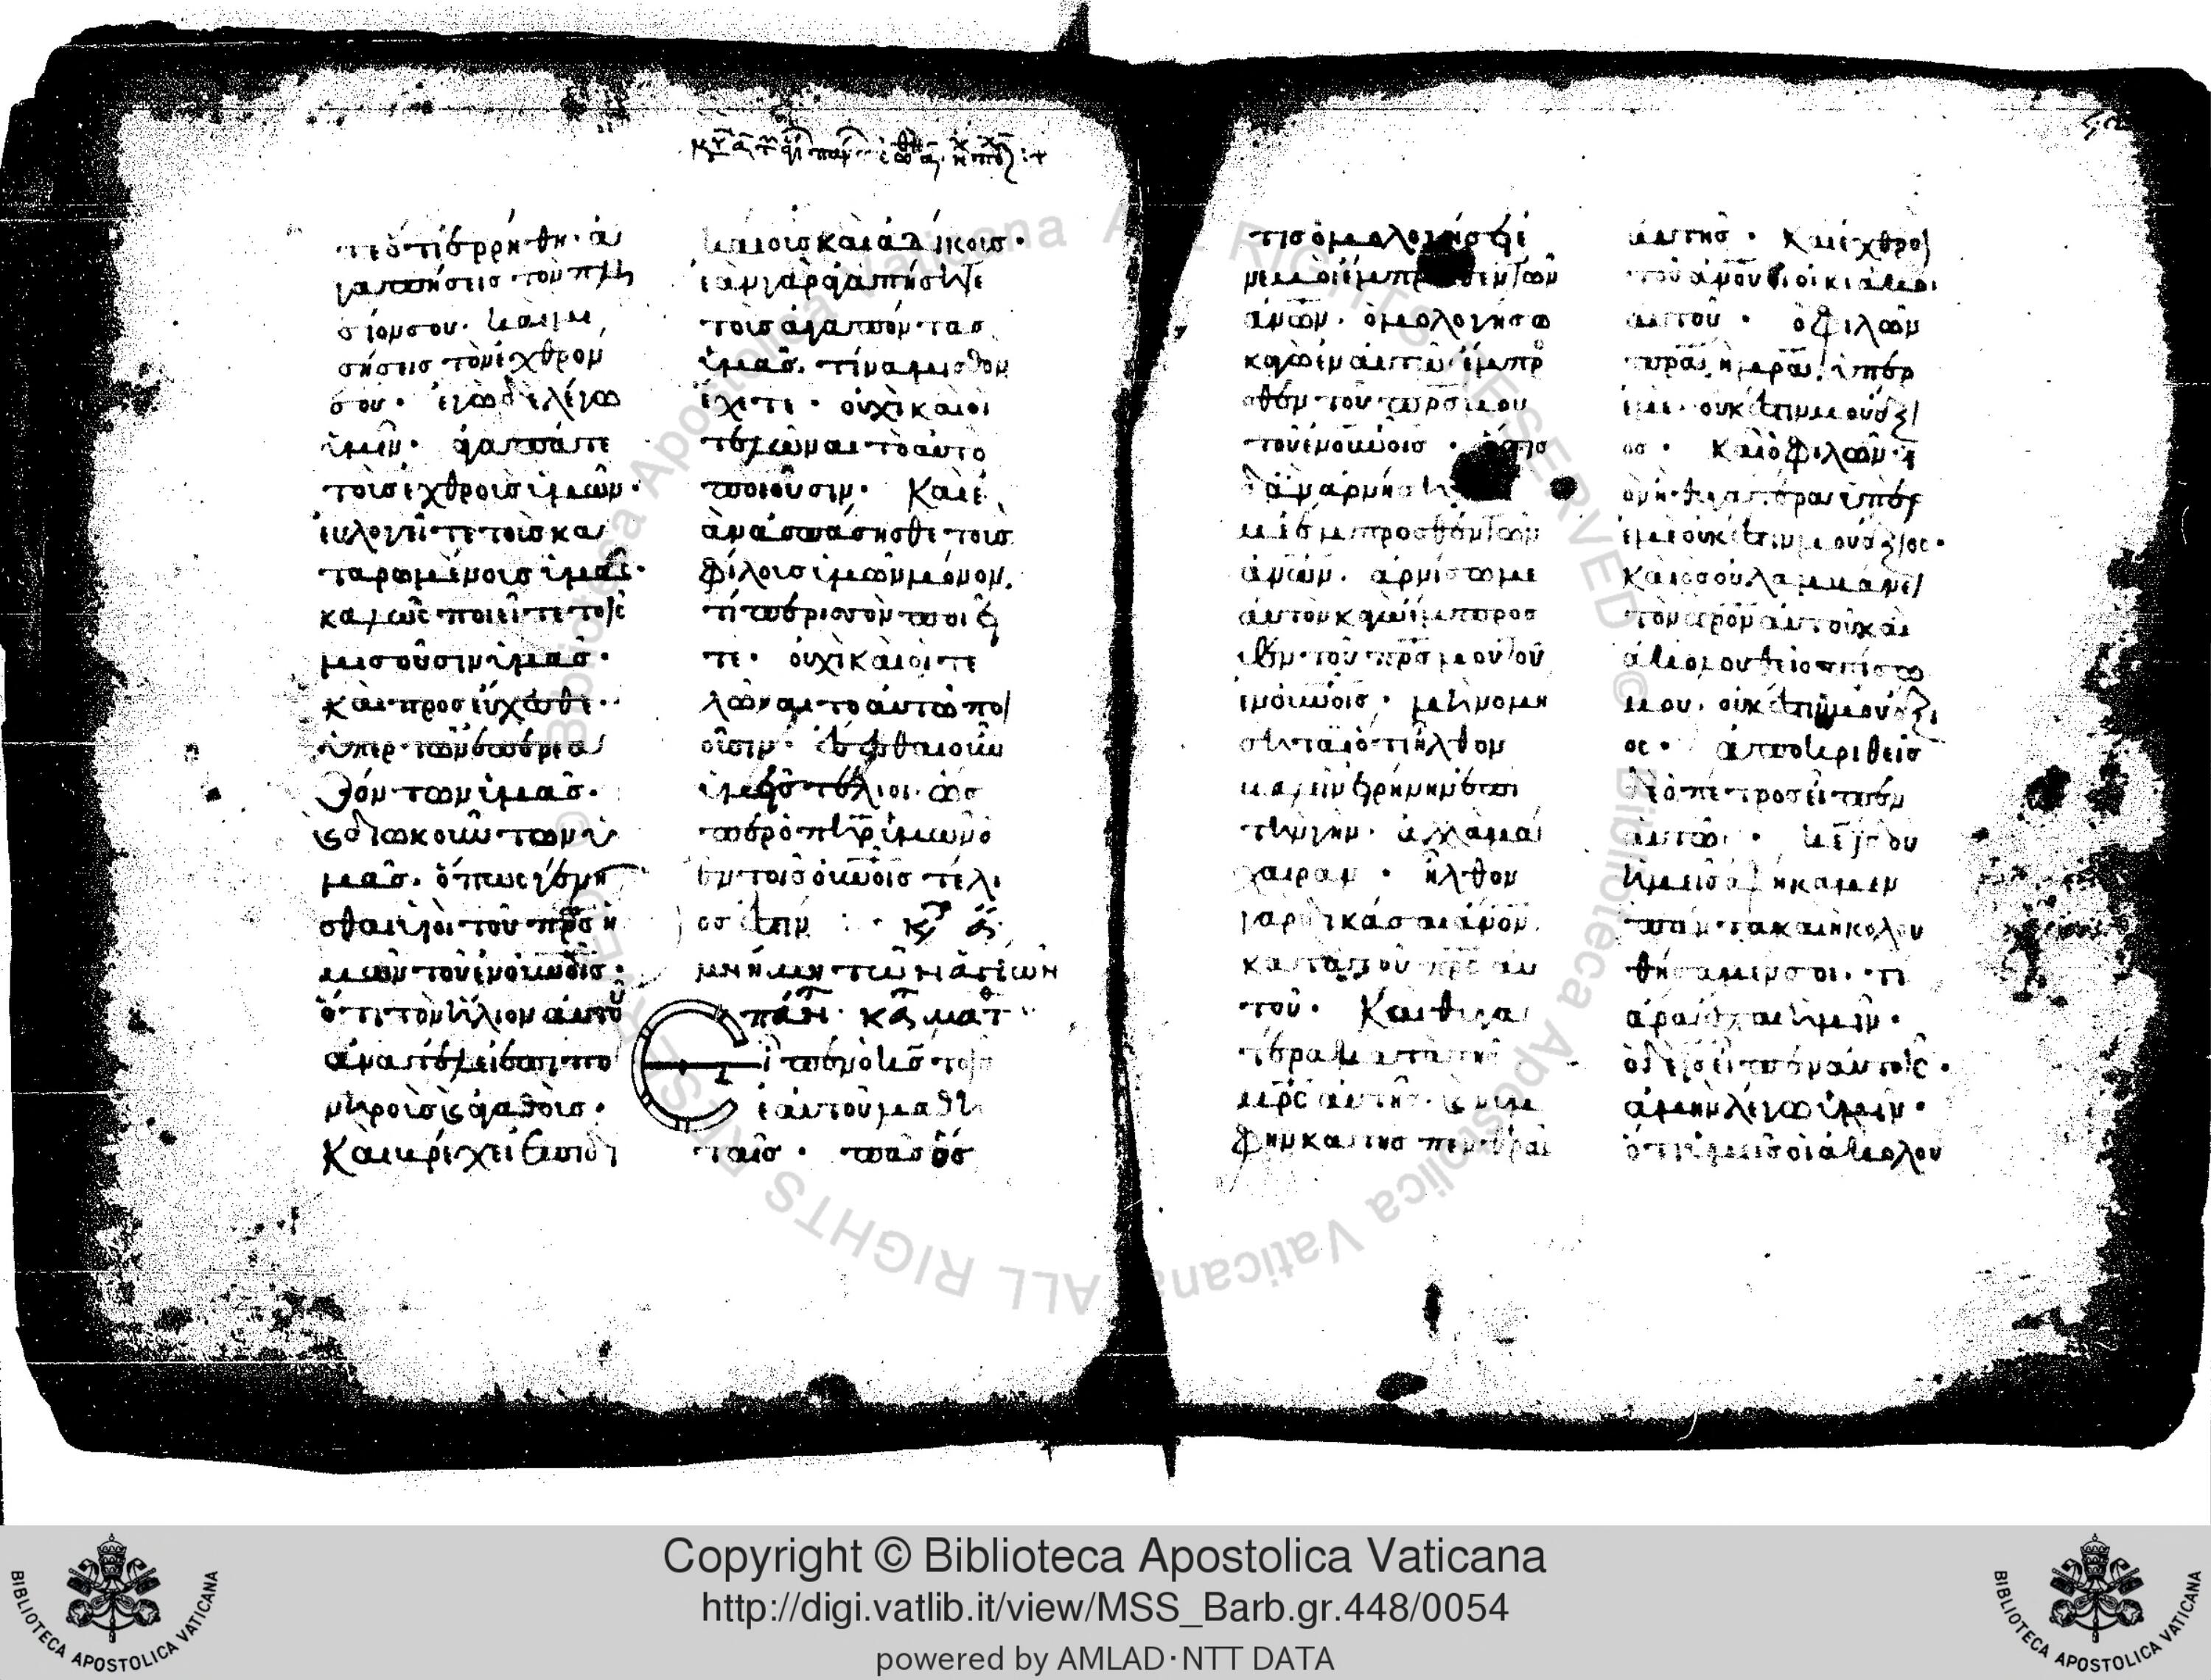 τε ὅτι ἐρρήθη· ἀ
γαπήσεις τὸν πλη
σίον σου· καὶ μι
σήσεις τὸν ἐχθρόν
σου· ἐγὼ δὲ λέγω
ὑμῖν· ἀγαπᾶτε
τοὺς ἐχθροὺς ὑμῶν·
εὐλογεῖτε τοὺς κα
ταρωμένους ὑμᾶς·
καλῶς ποιεῖτε τοῖς
μισοῦσιν ὑμᾶς·
καὶ προσεύχεσθε
ὑπὲρ τῶν ἐπηρεα
ζόντων ὑμᾶς·
καὶ διωκόντων ὑ
μᾶς· ὅπως γένη
σθαι υἱοὶ τοῦ πρς ἡ
μῶν τοῦ ἐν οὐνοις·
ὅτι τὸν ἥλιον αὐτοῦ
ἀνατέλλει ἐπὶ πο
νηροὺς καὶ ἀγαθοὺς·
Καὶ βρέχει ἐπὶ δι
καίοις καὶ ἀδίκοις·
ἐὰν γὰρ ἀγαπήσητε
τοὺς ἀγαπῶντας
ὑμᾶς· τίνα μισθὸν
ἔχετε· οὐχὶ καὶ οἱ
τελῶναι τὸ αὐτὸ
ποιοῦσιν· Καὶ ἐ
ὰν ἀσπάσησθε τοὺς
φίλοις ὑμῶν μόνον.
τί περισσὸν ποιεῖ
τε· οὐχὶ καὶ οἱ τε
λῶναι τὸ αὐτὸ ποι
οῦσιν· ἔσεσθαι οὖν
ὑμεῖς τέλιοι ὡς
περ ὁ πηρ ὑμῶν ὁ
ἐν τοῖς οὐνοις τέλι
ος ἐστιν :
μνήμη τῶν ἁγίων
πάντ κα ματ
Εἶπεν ὁ κς τοῖς
ἑαυτοῦ μαθη
ταῖς· πᾶς ὅσ
τις ὁμολογήσει
ἐμοὶ ἔμπροσθεν τῶν
ἀνων· ὁμολογήσω
κἀγὼ ἐν αὐτῷ ἔμπρο
σθεν τοῦ πρς μου
τοῦ ἐν οὐνοις· ὅστις
δ' ἂν ἀρνήσηται
με ἔμπροσθεν τῶν
ἀνων· ἀρνίσωμαι
αὐτὸν κἀγὼ ἔμπροσ
θεν τοῦ πρς μου τοῦ
ἐν οὐνοις· μὴ νομη
σηται ὅτι ἦλθον
βαλεῖν εἰρήνην ἐπι
τὴν γῆν· ἀλλὰ μά
χαιραν· ἦλθον
γὰρ δικάσαι ἀνον
κατὰ τοῦ πρς αὐ
τοῦ· Καὶ θυγα
τέρα κατὰ τῆς
μρς αὐτῆς· καὶ νύμ
φην κατὰ τῆς πενθερᾶς
αὐτῆς· Καὶ ἐχθροὶ
τοῦ ἀνου οἱ οἰκιακοι
αὐτοῦ· ὁ φιλῶν
πρα ἢ μρα ὑπὲρ
ἐμὲ· οὐκ ἐστιν μου ἄξι
ος· Καὶ ὁ φιλῶν υ
ον ἢ θυγατέρα ὑπὲρ
ἐμὲ οὐκ ἐστιν μου ἄξιος·
Καὶ ὃς οὐ λαμβάνει
τὸν στρον αὐτοῦ καὶ
ἀκολουθεῖ ὀπίσω
μου· οὐκ ἐστιν μου ἄξι
ος· ἀποκριθεὶς
δὲ ὁ πέτρος εἶπεν
αὐτῷ· κε ἰδοὺ
ἡμεῖς ἀφήκαμεν
πάντα καὶ ἠκολου
θήσαμεν σοι· τί
ἄρα ἔσται ἡμῖν·
ὁ δὲ ις εἶπεν αὐτοῖς·
ἀμὴν λέγω ὑμῖν·
ὅτι ὑμεῖς οἱ ἀκολου
Copyright © Biblioteca Apostolica Vaticana
http://digi.vatlib.it/view/MSS_Barb.gr.448/0054
powered by AMLAD·NTT DATA
BIBLIOTECA APOSTOLICA VATICANA
BIBLIOTECA APOSTOLICA VATICANA